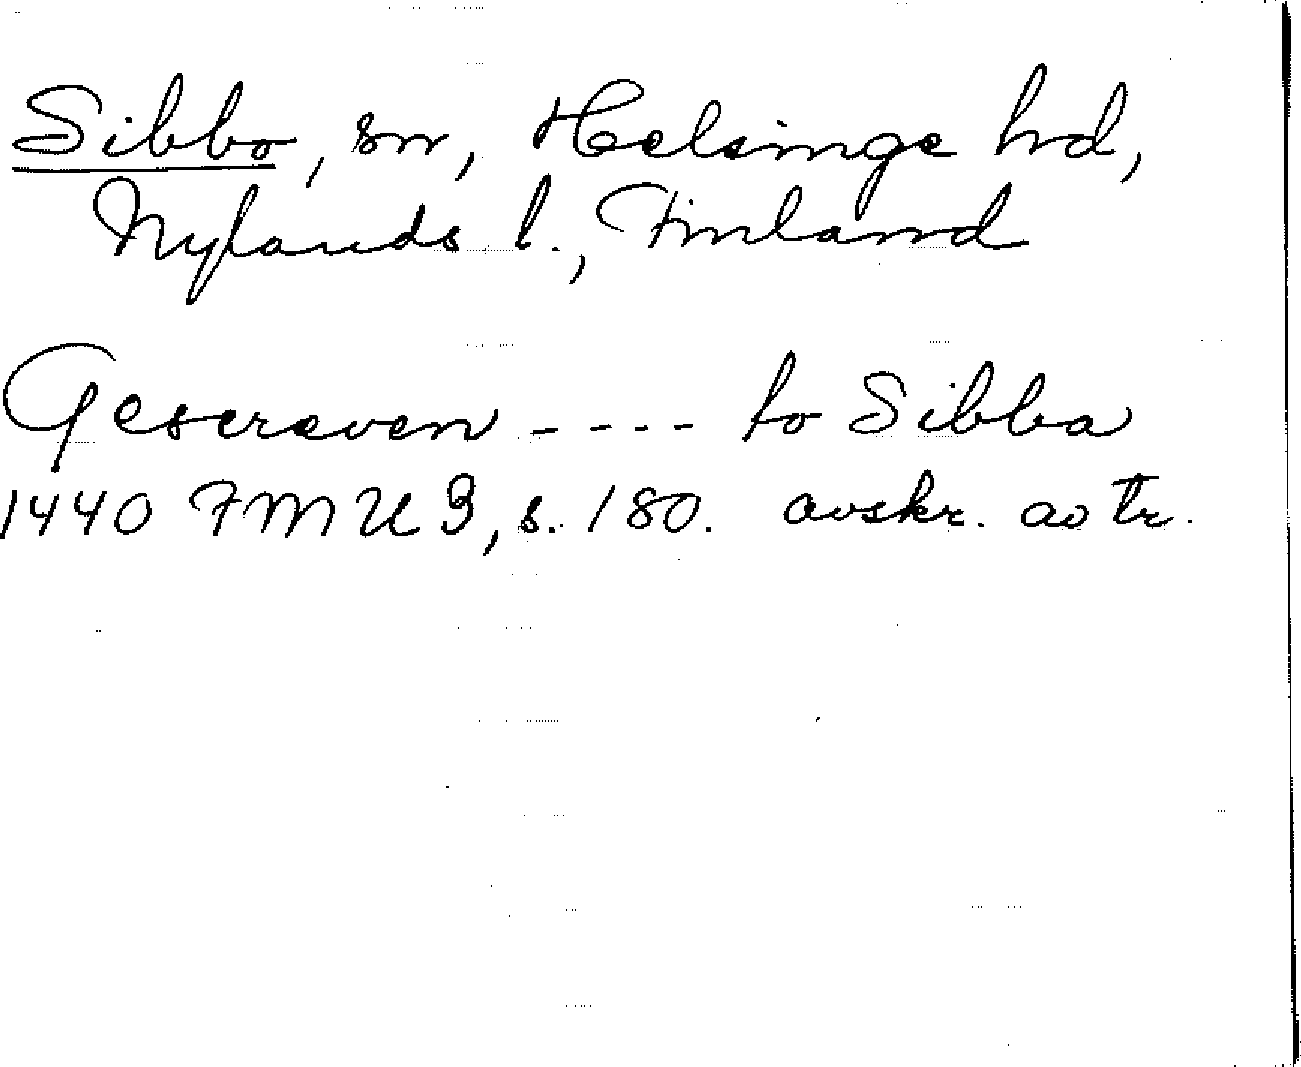 Sibbo, sn, Helsinge hrd,
Nylands l., Finland
Gescreven ---- to Sibba
1440 FMU 3, s. 180. avskr. av tr.